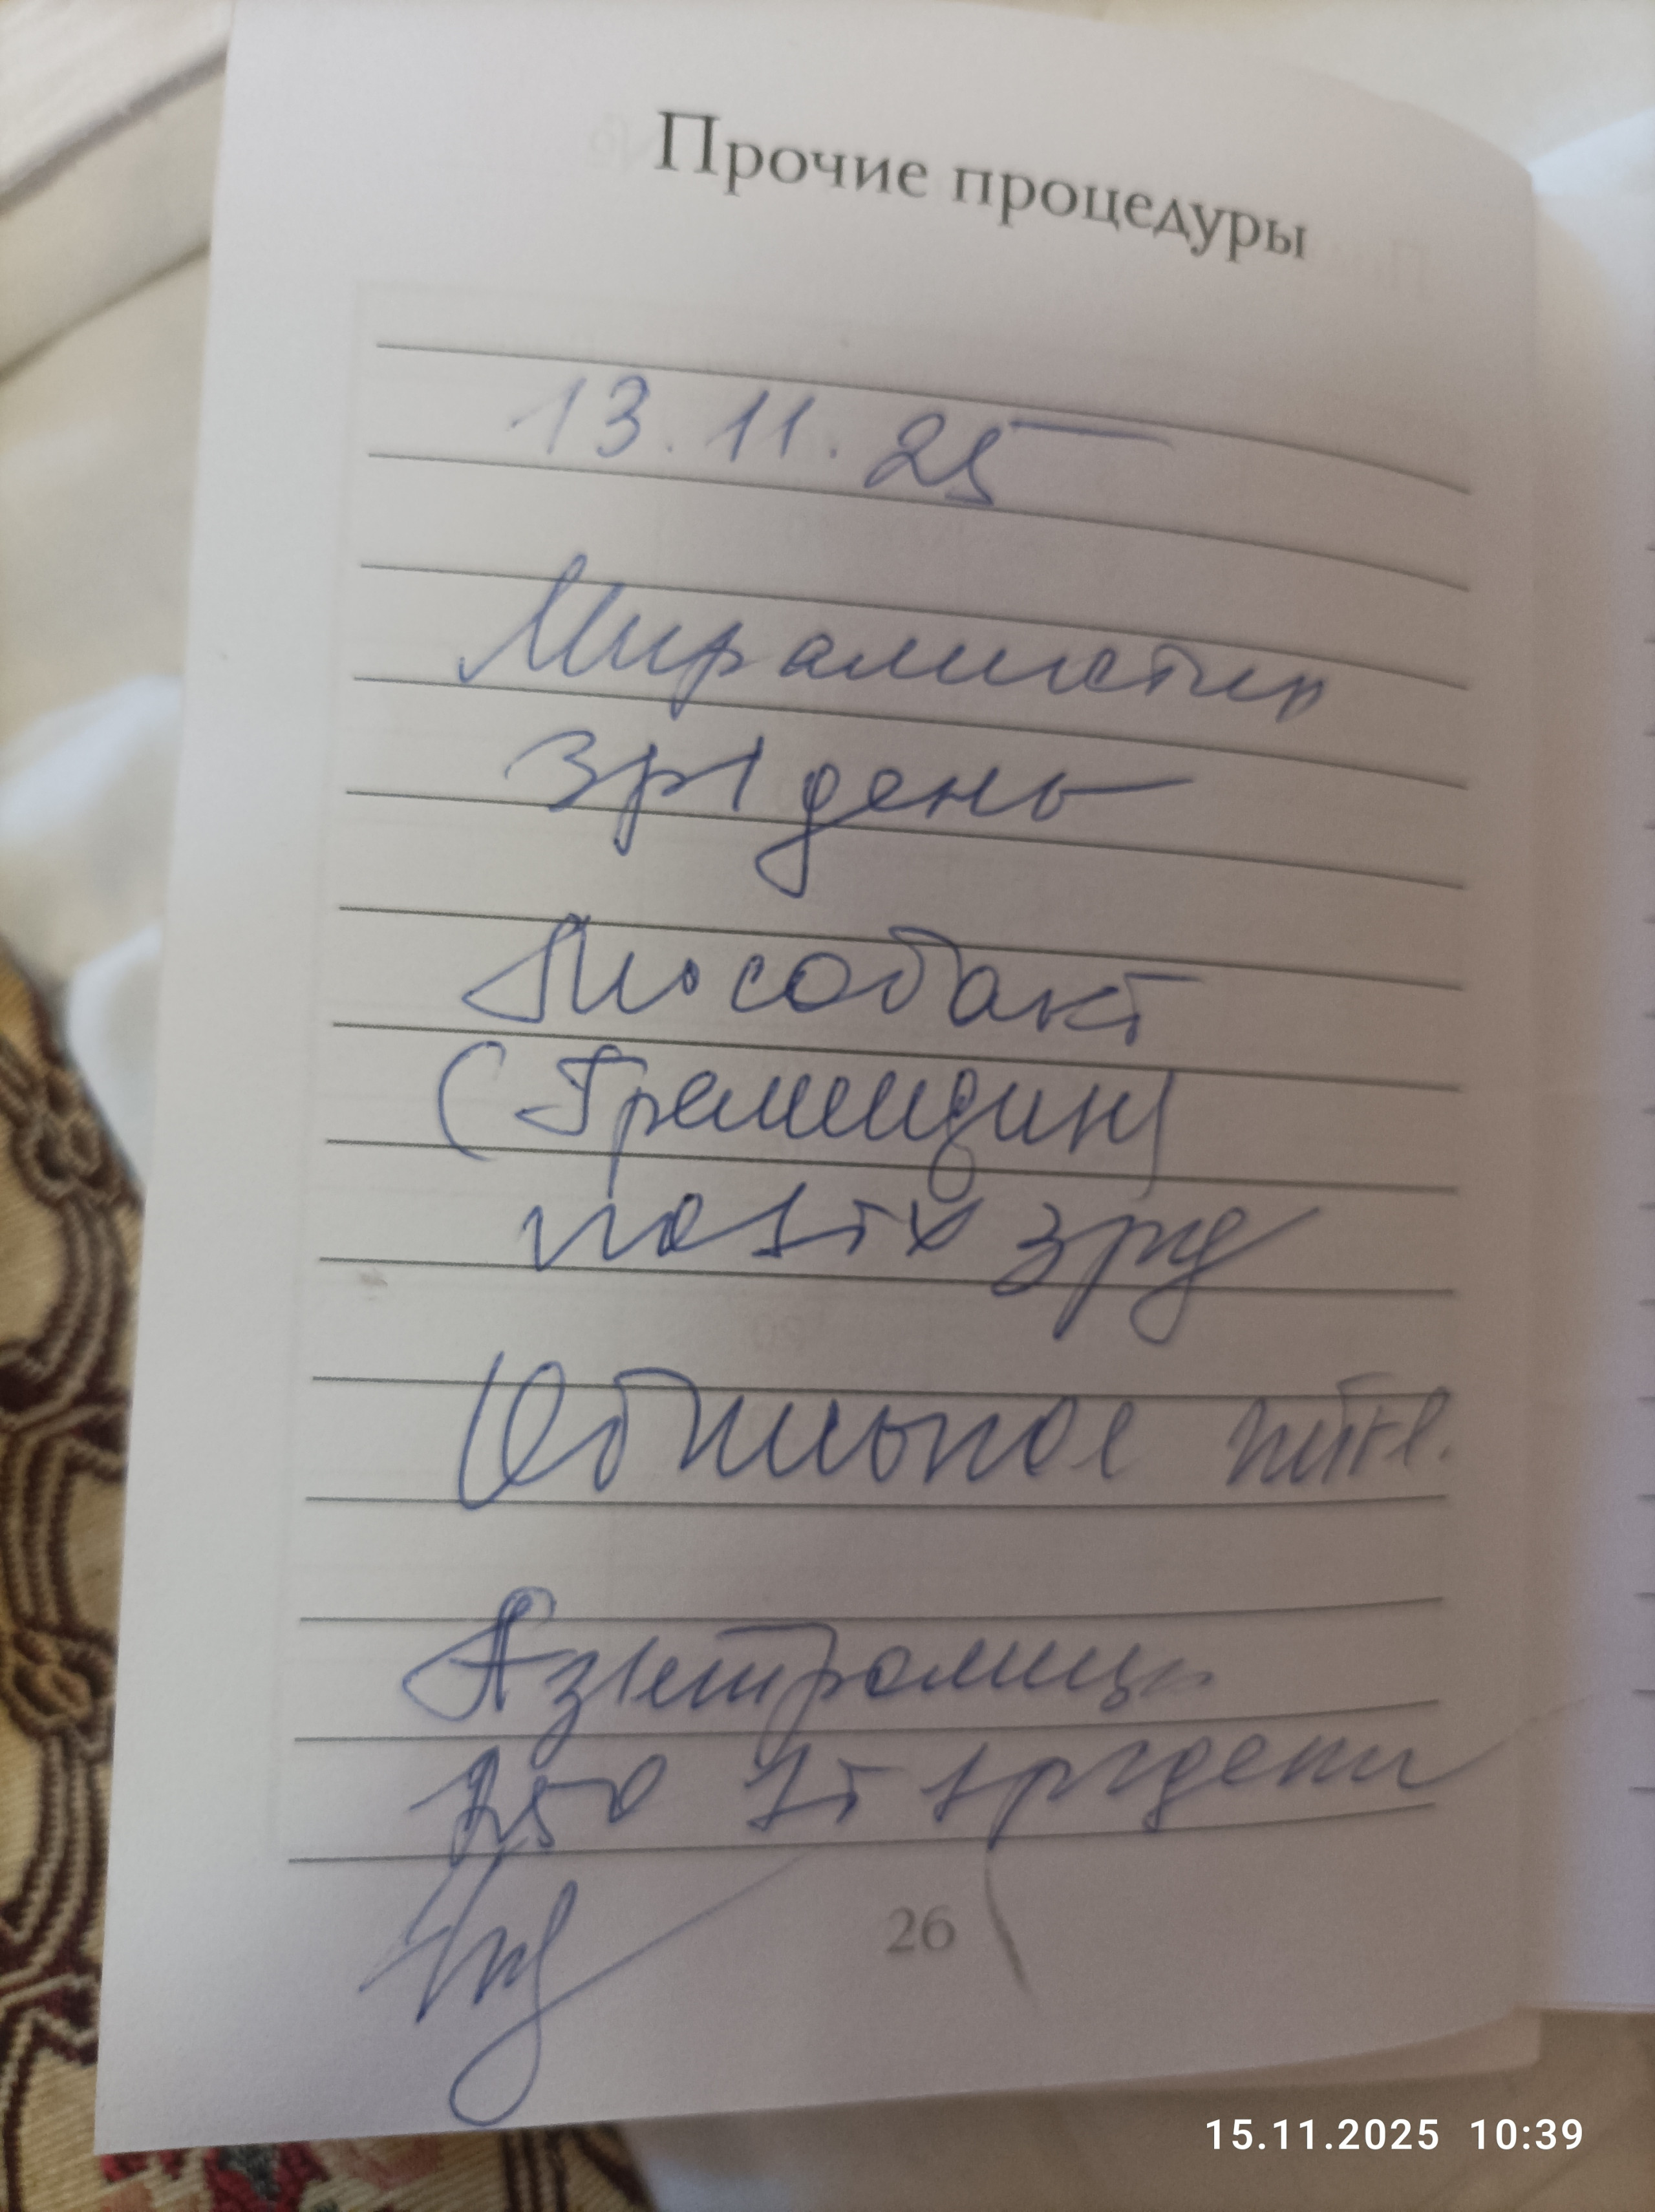 Прочие процедуры
13.11.25
Мирамистин
3р/день
Лизобакт
(Граммидин)
по 1т х 3р/д
Обильное питье.
Азитромицин
250 1т 1р/день
26
15.11.2025 10:39